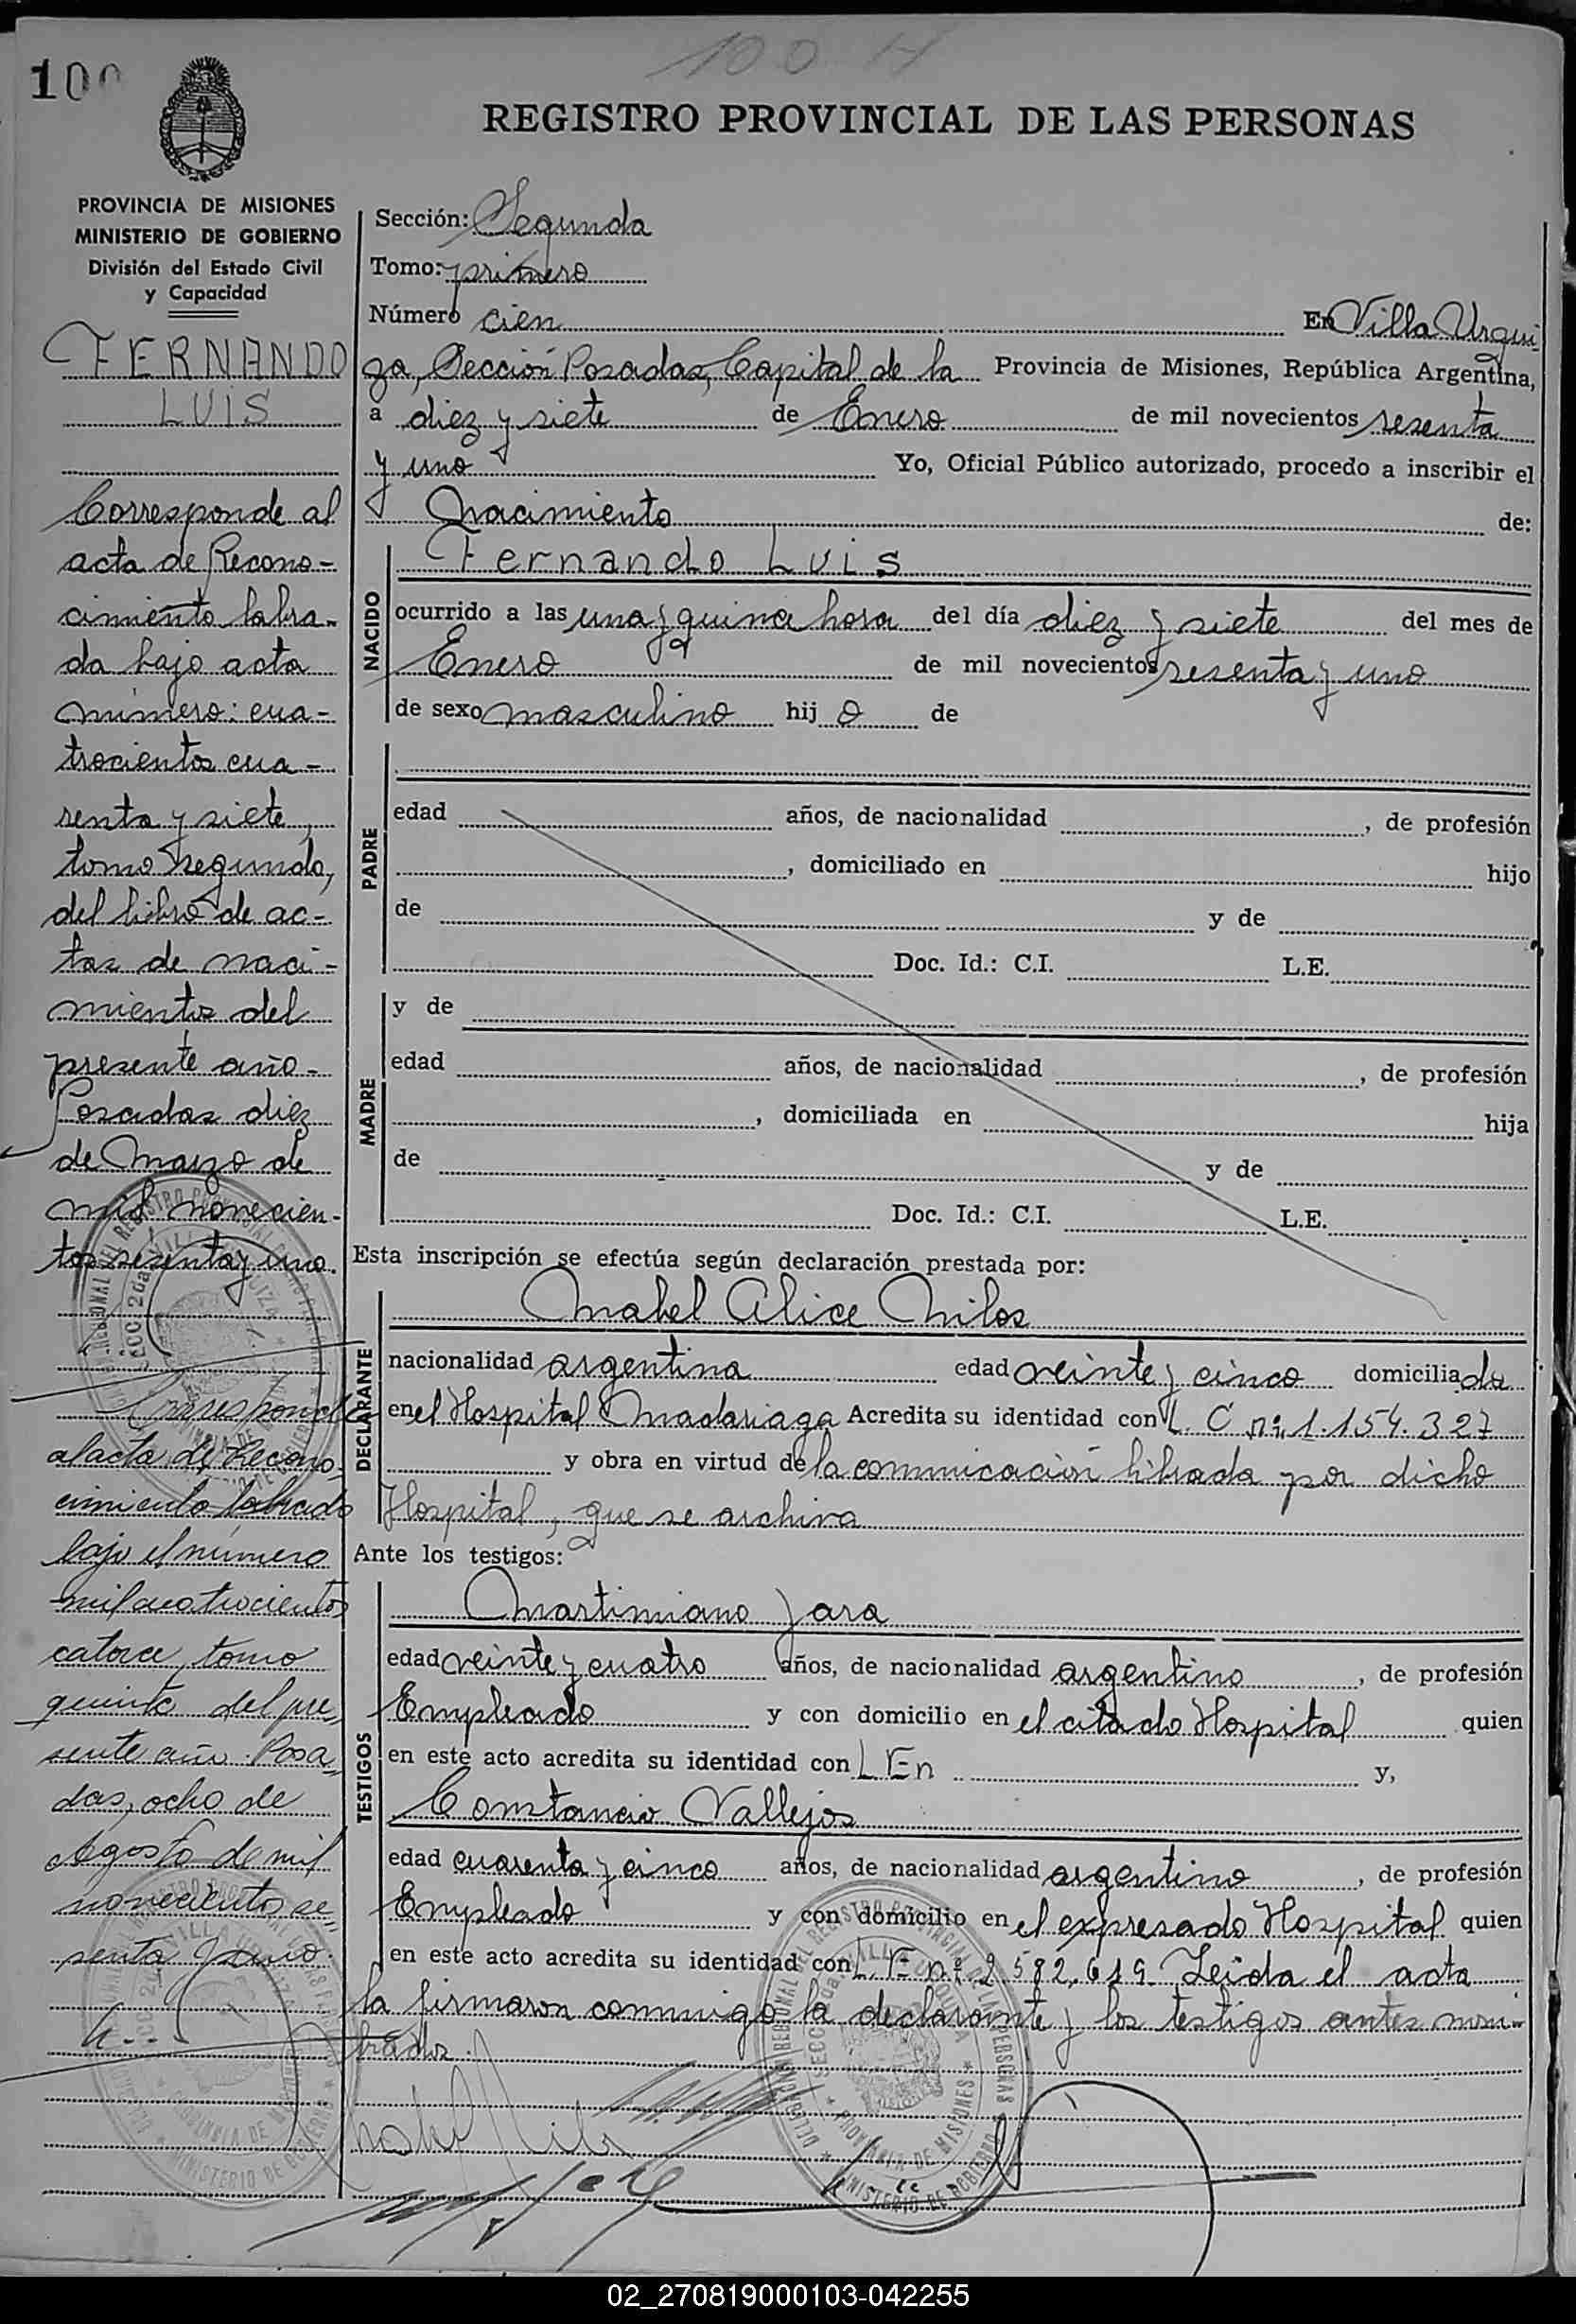 100 H
100
REGISTRO PROVINCIAL DE LAS PERSONAS
PROVINCIA DE MISIONES
MINISTERIO DE GOBIERNO
División del Estado Civil
y Capacidad
FERNANDO
LUIS
Corresponde al
acta de Recono-
cimiento labra-
da bajo acta
número: cua-
trocientos cua-
renta y siete,
tomo segundo,
del libro de ac-
tas de naci-
mientos del
presente año-
Posadas diez
de Marzo de
mil novecien-
tos sesenta y uno.
Corresponde
al acta de Recono-
cimiento labrado
bajo el número
mil cuatrocientos
catorce, tomo
quinto del pre-
sente año. Posa-
das, ocho de
Agosto de mil
novecientos se-
senta y uno.
Sección: Segunda
Tomo: primero
Número cien En Villa Urqui-
za, Sección Posadas, Capital de la Provincia de Misiones, República Argentina,
a diez y siete de Enero de mil novecientos sesenta
y uno Yo, Oficial Público autorizado, procedo a inscribir el
Nacimiento de:
NACIDO
Fernando Luis
ocurrido a las una y quince hora del día diez y siete del mes de
Enero de mil novecientos sesenta y uno
de sexo masculino hij o de
PADRE
edad años, de nacionalidad , de profesión
, domiciliado en hijo
de y de
Doc. Id.: C.I. L.E.
MADRE
y de
edad años, de nacionalidad , de profesión
, domiciliada en hija
de y de
Doc. Id.: C.I. L.E.
Esta inscripción se efectúa según declaración prestada por:
DECLARANTE
Mabel Alice Milos
nacionalidad argentina edad veinte y cinco domiciliada
en el Hospital Madariaga Acredita su identidad con L. C nº 1.154.327
y obra en virtud de la comunicación librada por dicho
Hospital, que se archiva
Ante los testigos:
TESTIGOS
Martimiano Jara
edad veinte y cuatro años, de nacionalidad argentino , de profesión
Empleado y con domicilio en el citado Hospital quien
en este acto acredita su identidad con L En y,
Constancio Vallejos
edad cuarenta y cinco años, de nacionalidad argentino , de profesión
Empleado y con domicilio en el expresado Hospital quien
en este acto acredita su identidad con L. E nº 2.582.619. Leida el acta
la firmaron conmigo la declarante y los testigos antes nom-
brados.
02_270819000103-042255